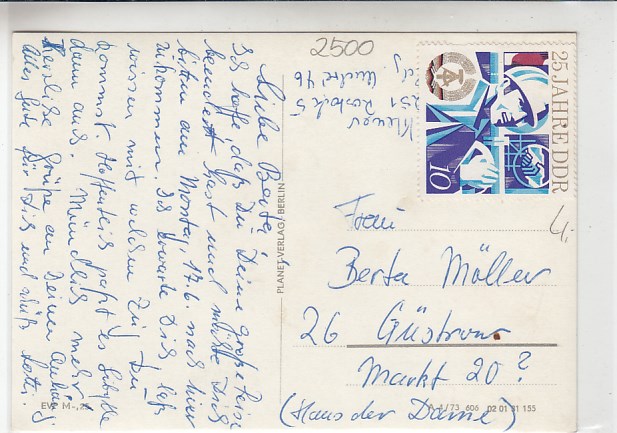 2500
Liebe Berta,
Ich hoffe, daß Du Deine große Reise
beendet hast und möchte Dich
bitten am Montag 17.6. nach hier
zu kommen. Ich erwarte Dich, laß
wissen mit welchem Zug Du
kommst. Hoffentlich paßt es Sibylle
dann auch. Mündlich mehr.
Herzliche Grüße an Deinen
Alles Gute für Dich und
251 Rostock 5
25 JAHRE DDR
10
PLANET-VERLAG BERLIN
Frau
Berta Möller
26 Güstrow
Markt 20?
(Haus der Dame)
EVP M -,20
A 1/73 606 02 01 31 155